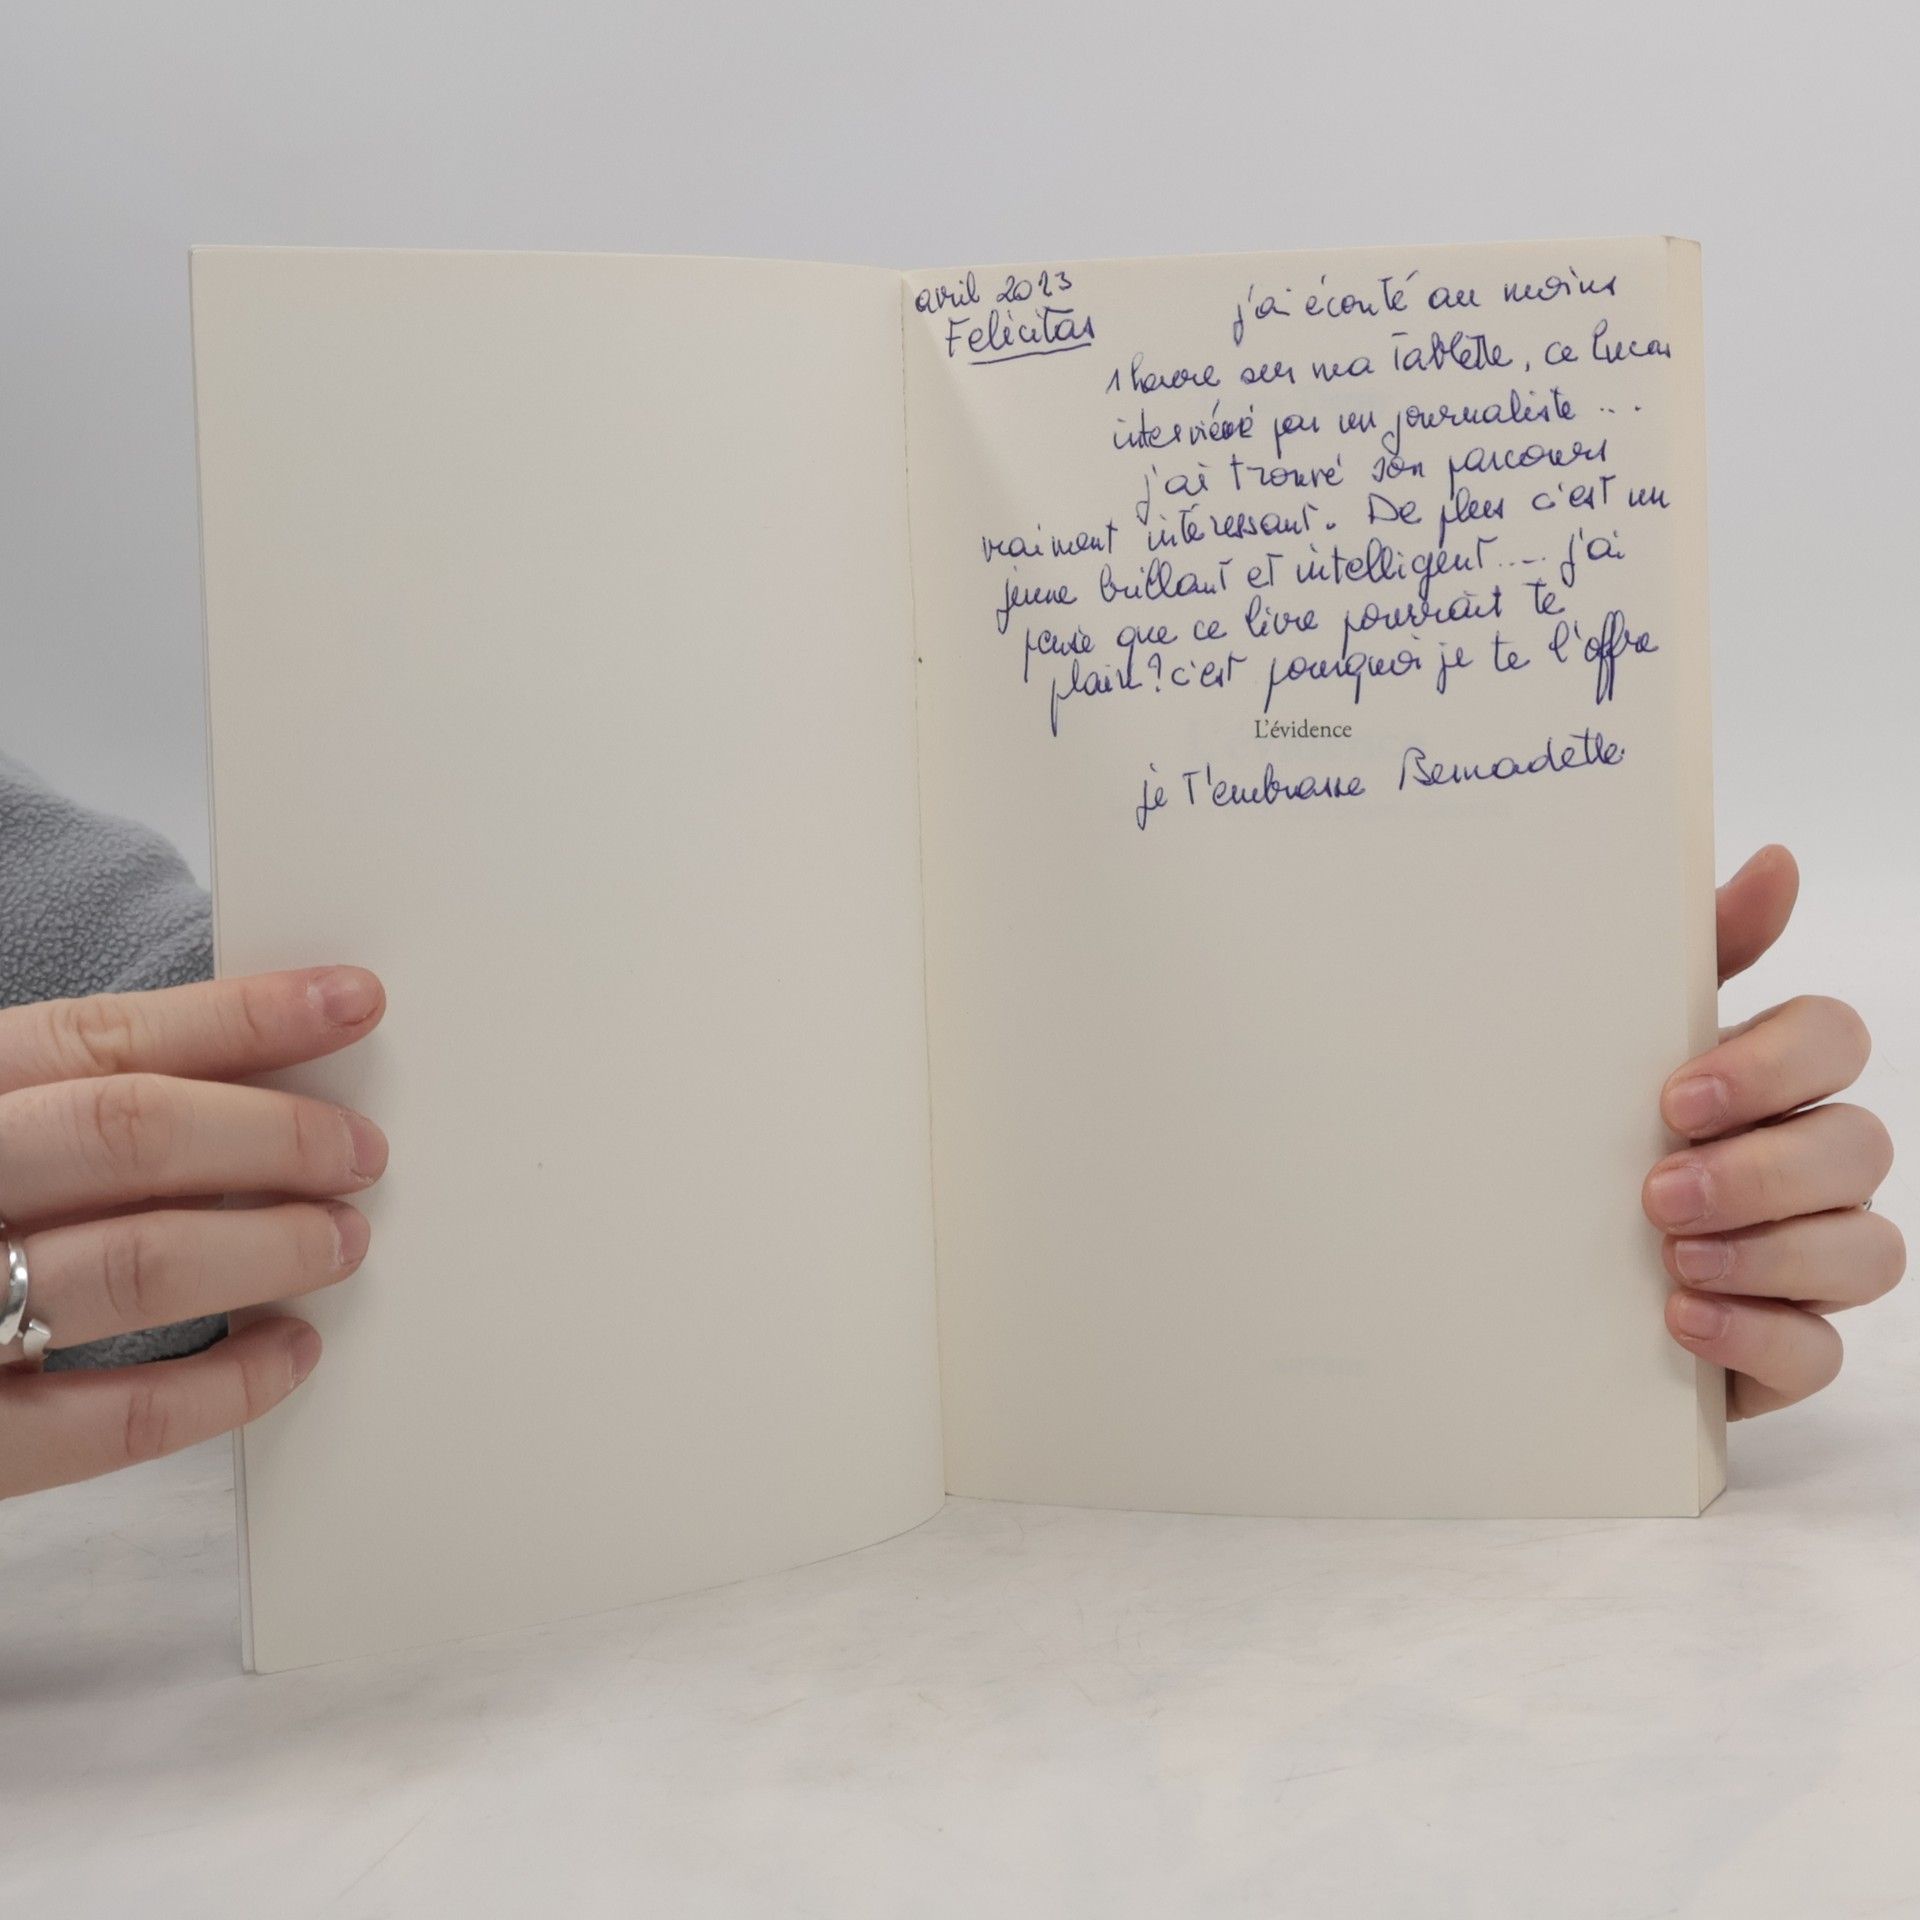 avril 2023
Felicitas
j'ai écouté au moins
1 heure sur ma Tablette, ce Lucas
par un journaliste ...
j'ai trouvé son parcours
vraiment intéressant. De plus c'est un
jeune brillant et intelligent.... j'ai
pensé que ce livre pourrait te
plaire? c'est pourquoi je te l'offre
L'évidence
je T'embrasse Bernadette